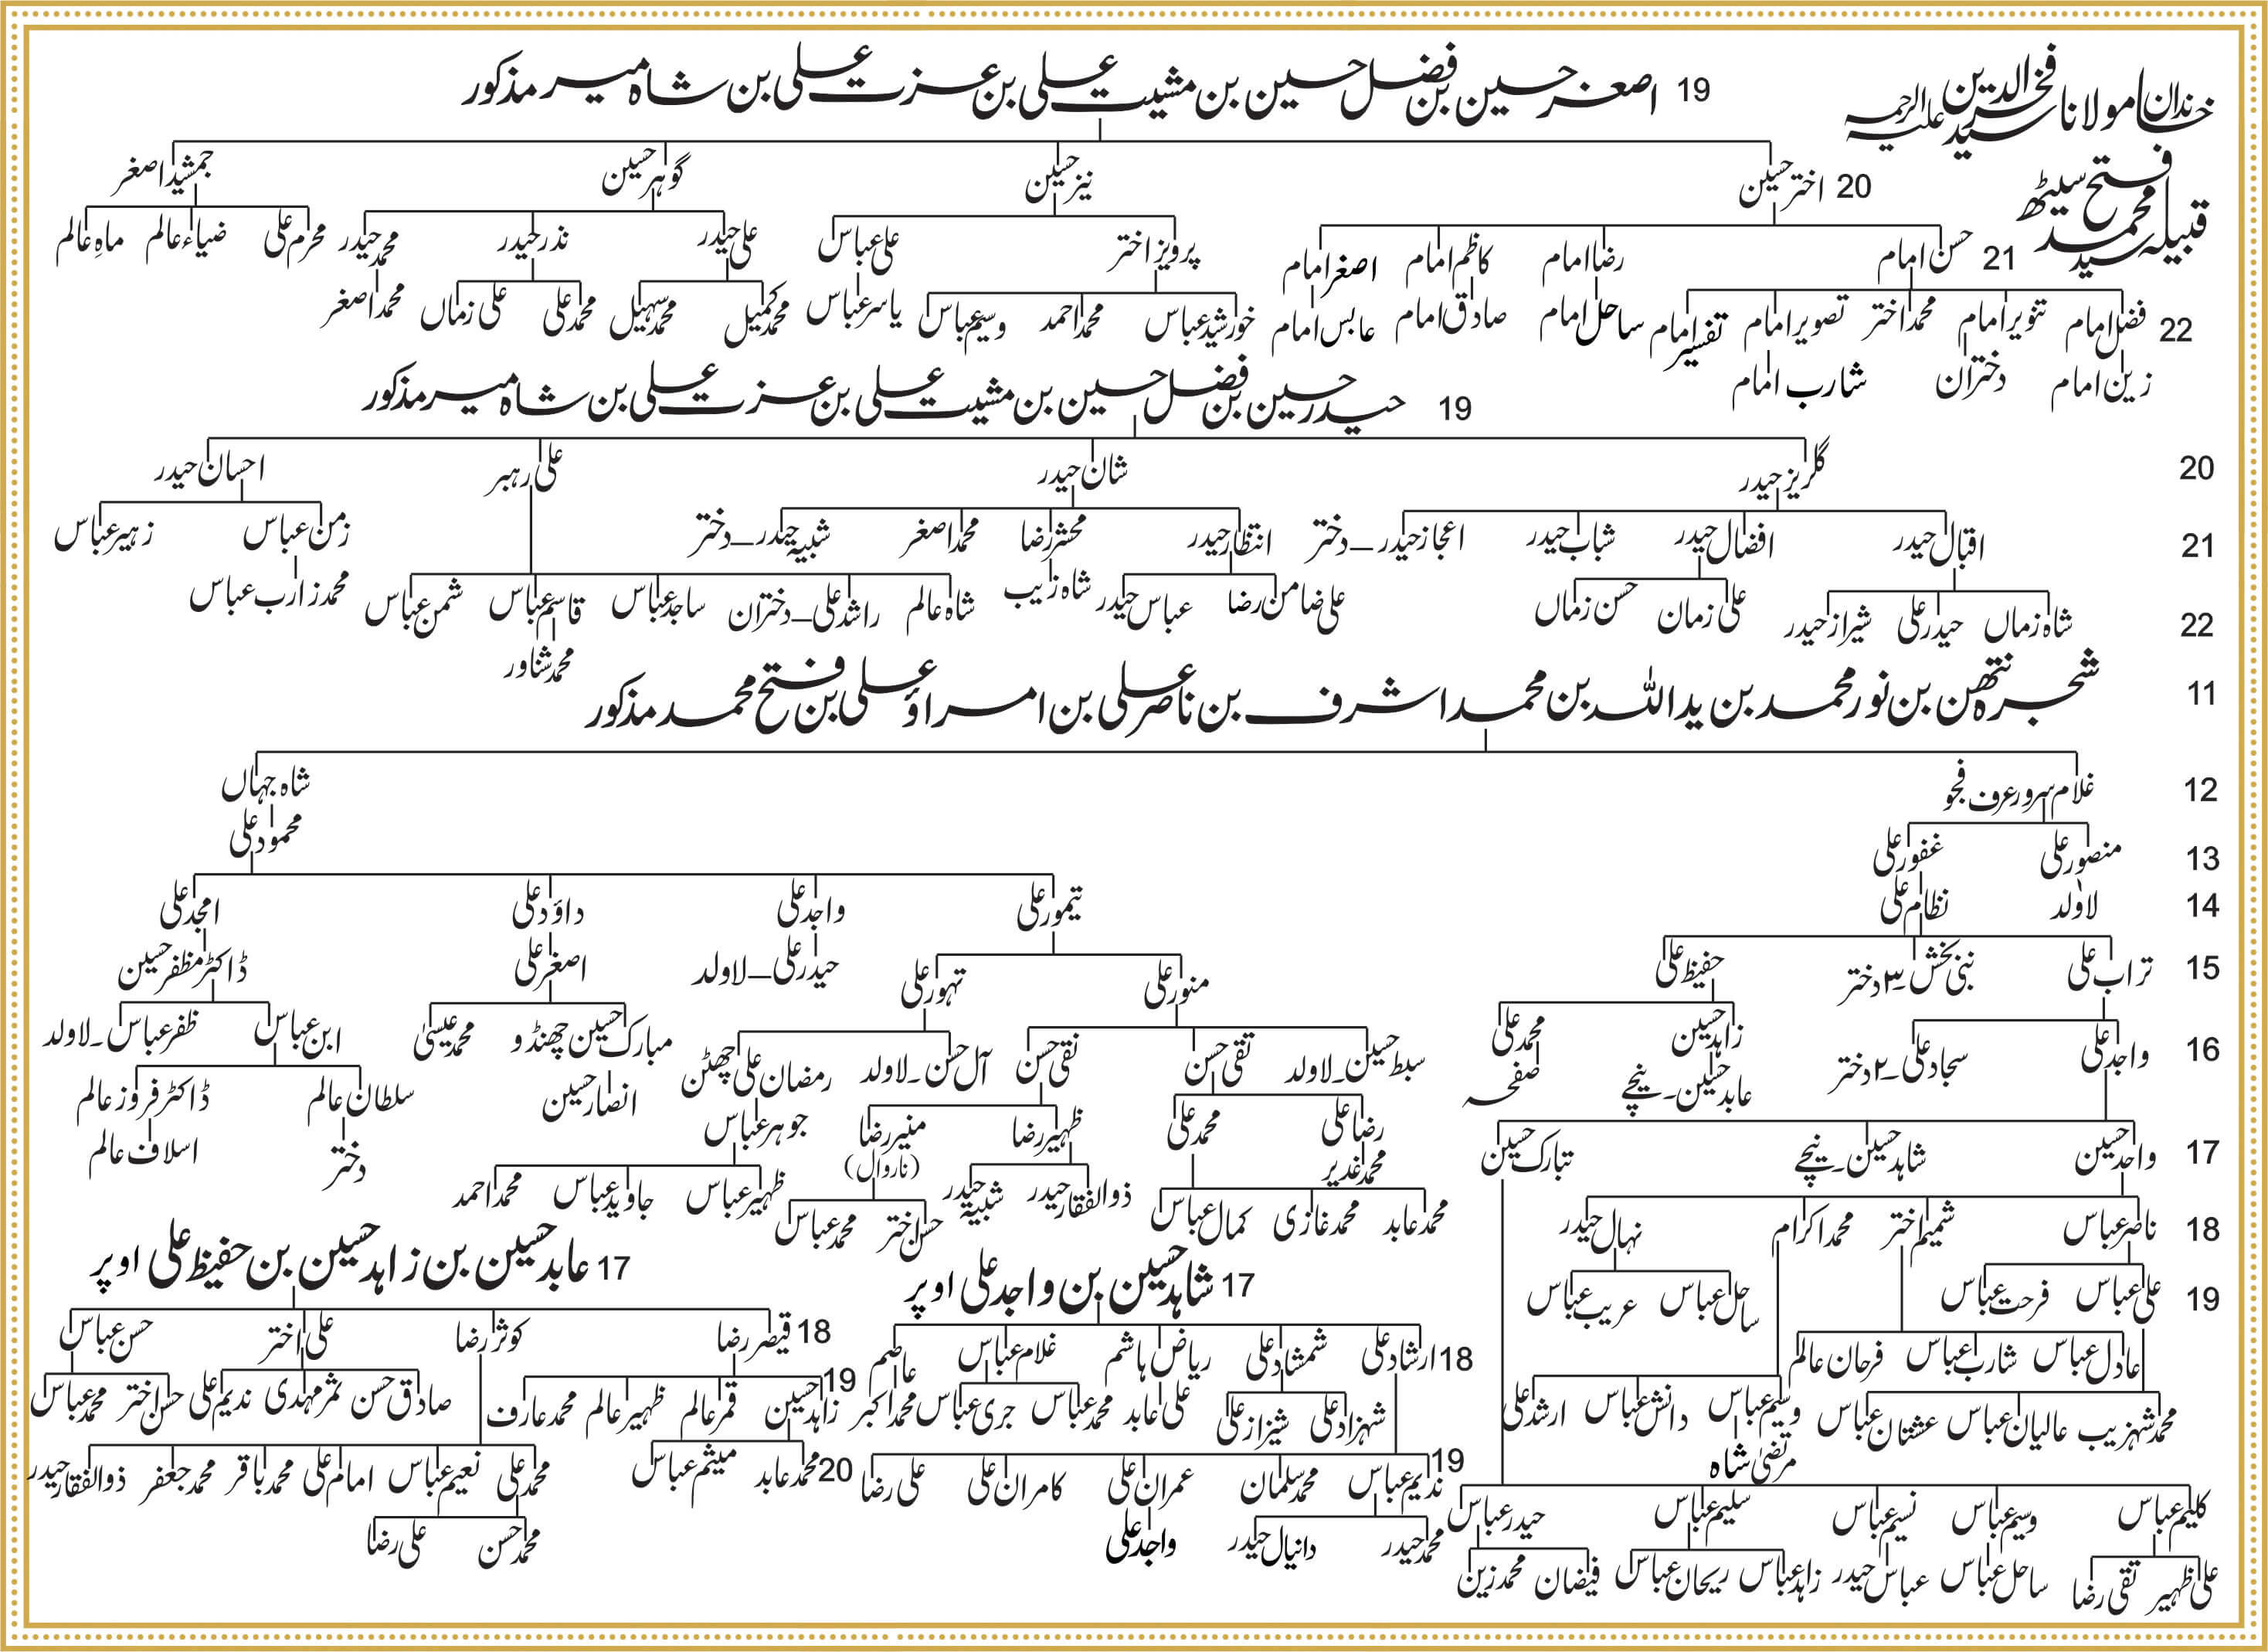 خاندان مولانا سید فخرالدین علیہ الرحمہ
قبیلہ سید محمد فتح سیٹھ
19 اصغر حسین بن فضل حسین بن مشیت علی بن عزت علی بن شاہ میر مذکور
20 اختر حسین نیر حسین گوہر حسین جمشید اصغر
21 حسن امام رضا امام کاظم امام اصغر امام پرویز اختر علی عباس علی حیدر نذر حیدر محمد حیدر محرم علی ضیاء عالم ماہ عالم
22 فضل امام تنویر امام محمد اختر تصویر امام تفسیر امام ساحل امام صادق امام عابس امام خورشید عباس محمد احمد وسیم عباس یاسر عباس محمد کمیل محمد سہیل محمد علی علی زماں محمد اصغر
زین امام دختران شارب امام
19 حیدر حسین بن فضل حسین بن مشیت علی بن عزت علی بن شاہ میر مذکور
20 گلریز حیدر شان حیدر علی رہبر احسان حیدر
21 اقبال حیدر افضال حیدر شباب حیدر اعجاز حیدر_دختر انتظار حیدر محشر رضا محمد اصغر شبیہ حیدر_دختر زمن عباس زہیر عباس
22 شاہ زماں حیدر علی شیراز حیدر علی زمان حسن زماں علی ضامن رضا عباس حیدر شاہ زیب شاہ عالم راشد علی_دختران ساجد عباس قاسم عباس شمن عباس محمد زارب عباس
محمد شناور
11 شجرہ نتھن بن نور محمد بن ید اللہ بن محمد اشرف بن ناصر علی بن امراؤ علی بن فتح محمد مذکور
12 غلام سرور عرف فجو شاہ جہاں
13 منصور علی غفور علی محمود علی
14 لاولد نظام علی تیمور علی واجد علی داؤد علی امجد علی
15 تراب علی نبی بخش۔۳ دختر حفیظ علی منور علی تہور علی حیدر علی_لاولد اصغر علی ڈاکٹر مظفر حسین
16 واجد علی سجاد علی۔۲ دختر زاہد حسین محمد علی سبط حسین۔لاولد تقی حسن نقی حسن آل حسن۔لاولد رمضان علی چھٹن مبارک حسین چھنڈو محمد عیسیٰ ابن عباس ظفر عباس۔لاولد
عابد حسین۔نیچے صفحہ رضا علی محمد علی ظہیر رضا منیر رضا (ناروال) جوہر عباس انصار حسین سلطان عالم ڈاکٹر فروز عالم
17 واحد حسین شاہد حسین۔نیچے تبارک حسین محمد غدیر دختر اسلاف عالم
محمد عابد محمد غازی کمال عباس ذوالفقار حیدر شبیہ حیدر حسن اختر محمد عباس ظہیر عباس جاوید عباس محمد احمد
18 ناصر عباس شمیم اختر محمد اکرام نہال حیدر
19 علی عباس فرحت عباس ساحل عباس عریب عباس
عادل عباس شارب عباس فرحان عالم
محمد شہزیب عالیان عباس عشنان عباس وسیم عباس دانش عباس ارشد علی
مرتضیٰ شاہ
کلیم عباس وسیم عباس نسیم عباس سلیم عباس حیدر عباس
علی ظہیر تقی رضا ساحل عباس عباس حیدر زاہد عباس ریحان عباس فیضان محمد زین
17 شاہد حسین بن واجد علی اوپر
18 ارشاد علی شمشاد علی ریاض ہاشم غلام عباس عاصم
شہزاد علی شیراز علی علی عابد محمد عباس جری عباس محمد اکبر
19 ندیم عباس محمد سلمان عمران علی کامران علی علی رضا
محمد حیدر دانیال حیدر واجد علی
17 عابد حسین بن زاہد حسین بن حفیظ علی اوپر
18 قیصر رضا کوثر رضا علی اختر حسن عباس
19 زاہد حسین قمر عالم ظہیر عالم محمد عارف صادق حسن ثمر مہدی ندیم علی حسن اختر محمد عباس
20 محمد عابد میثم عباس محمد علی نعیم عباس امام علی محمد باقر محمد جعفر ذوالفقار حیدر
محمد حسن علی رضا